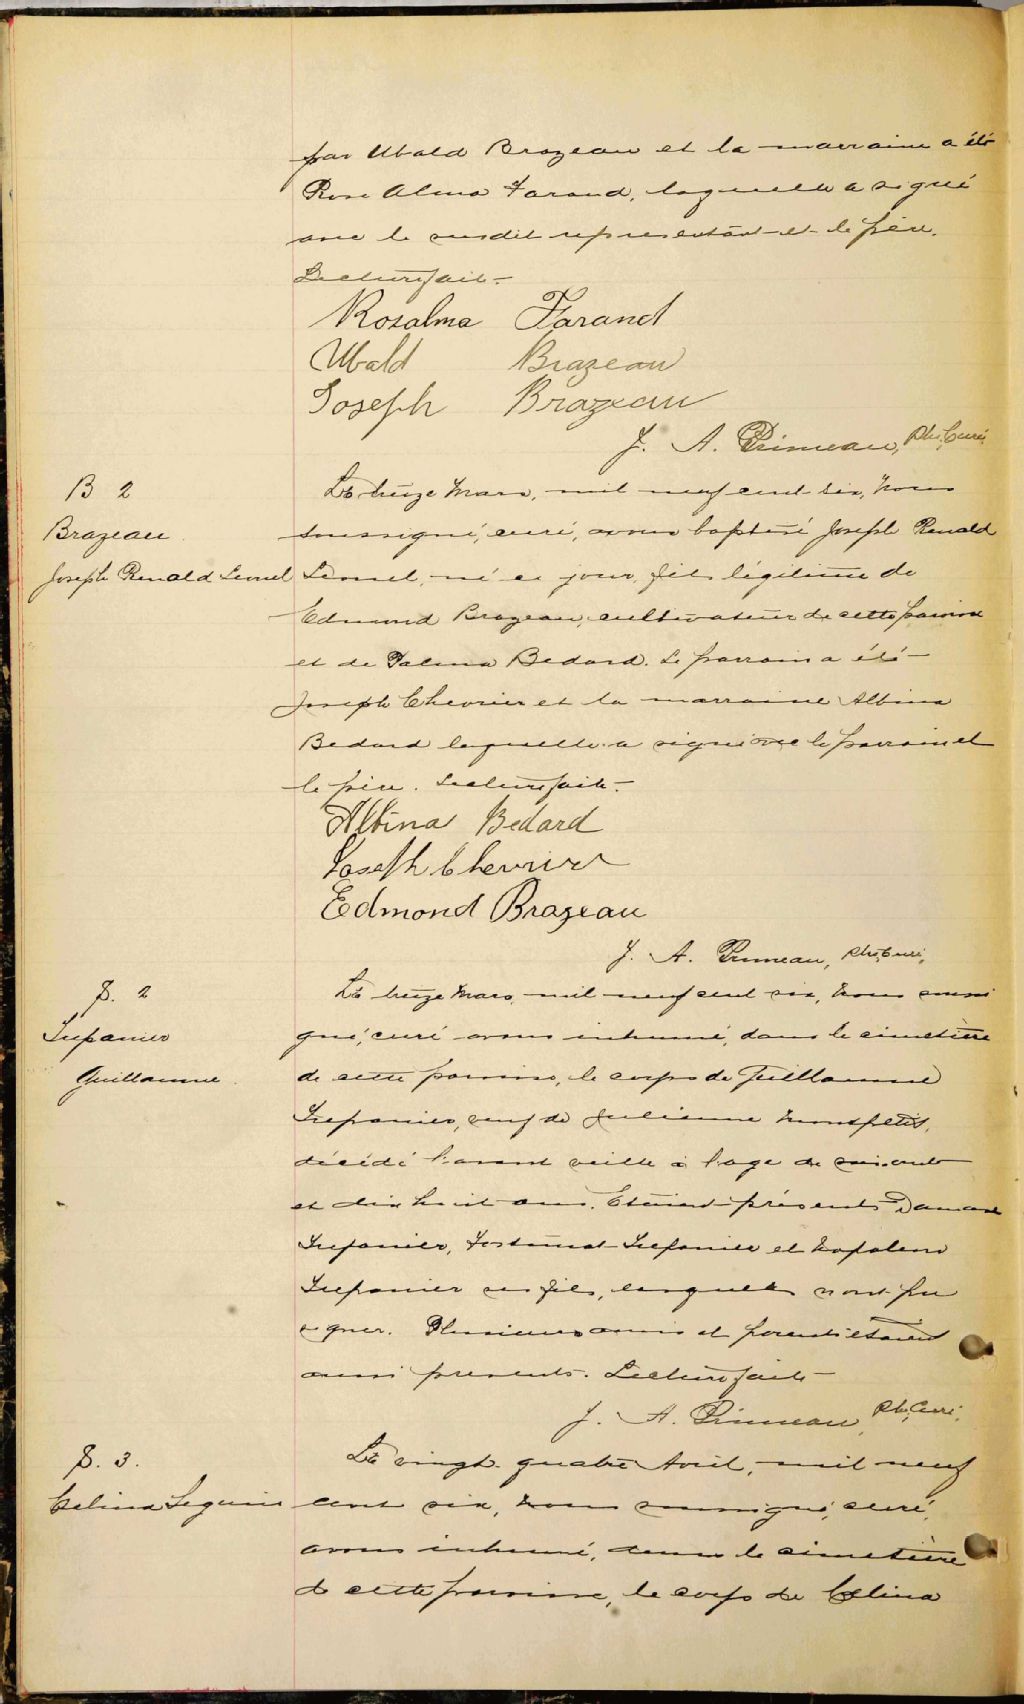 par Ubald Brazeau et la marraine a été
Rose Alma Farand, laquelle a signé
avec le susdit representant et le père.
Lecture faite.
Rosalma Farand
Ubald Brazeau
Joseph Brazeau
J. A. Primeau, Ptre, Curé.
B 2
Brazeau
Joseph Renald Leonel
Le treize Mars, mil neuf cent six, Nous
soussigné, curé, avons baptisé Joseph Renald
Leonel, né ce jour, fils légitime de
Edmond Brazeau, cultivateur de cette paroisse
et de Bedard. Le parrain a été
Joseph Chevrier et la marraine Albina
Bedard laquelle a signé avec le parrain et
le père. Lecture faite.
Albina Bedard
Joseph Chevrier
Edmond Brazeau
J. A. Primeau, Ptre, Curé,
S. 2
Trepanier
Guillaume
Le treize Mars, mil neuf cent six, Nous soussi
gné, curé avons inhumé, dans le cimetière
de cette paroisse, le corps de Guillaume
Trepanier, veuf de Julienne Monspetit,
décédé l'avant veille à l'age de soixante
et dix huit ans. Etaient présents Damase
Trepanier, Fortunat Trepanier et Napoleon
Trepanier ses fils, lesquels n'ont pu
signer. Plusieurs amis et parents étaient
aussi presents. Lecture faite
J. A. Primeau, Ptre, Curé,
S. 3.
Celina Seguin
Le vingt-quatre Avril, mil neuf
cent six, Nous soussigné, curé,
avons inhumé, dans le cimetière
de cette paroisse, le corps de Celina